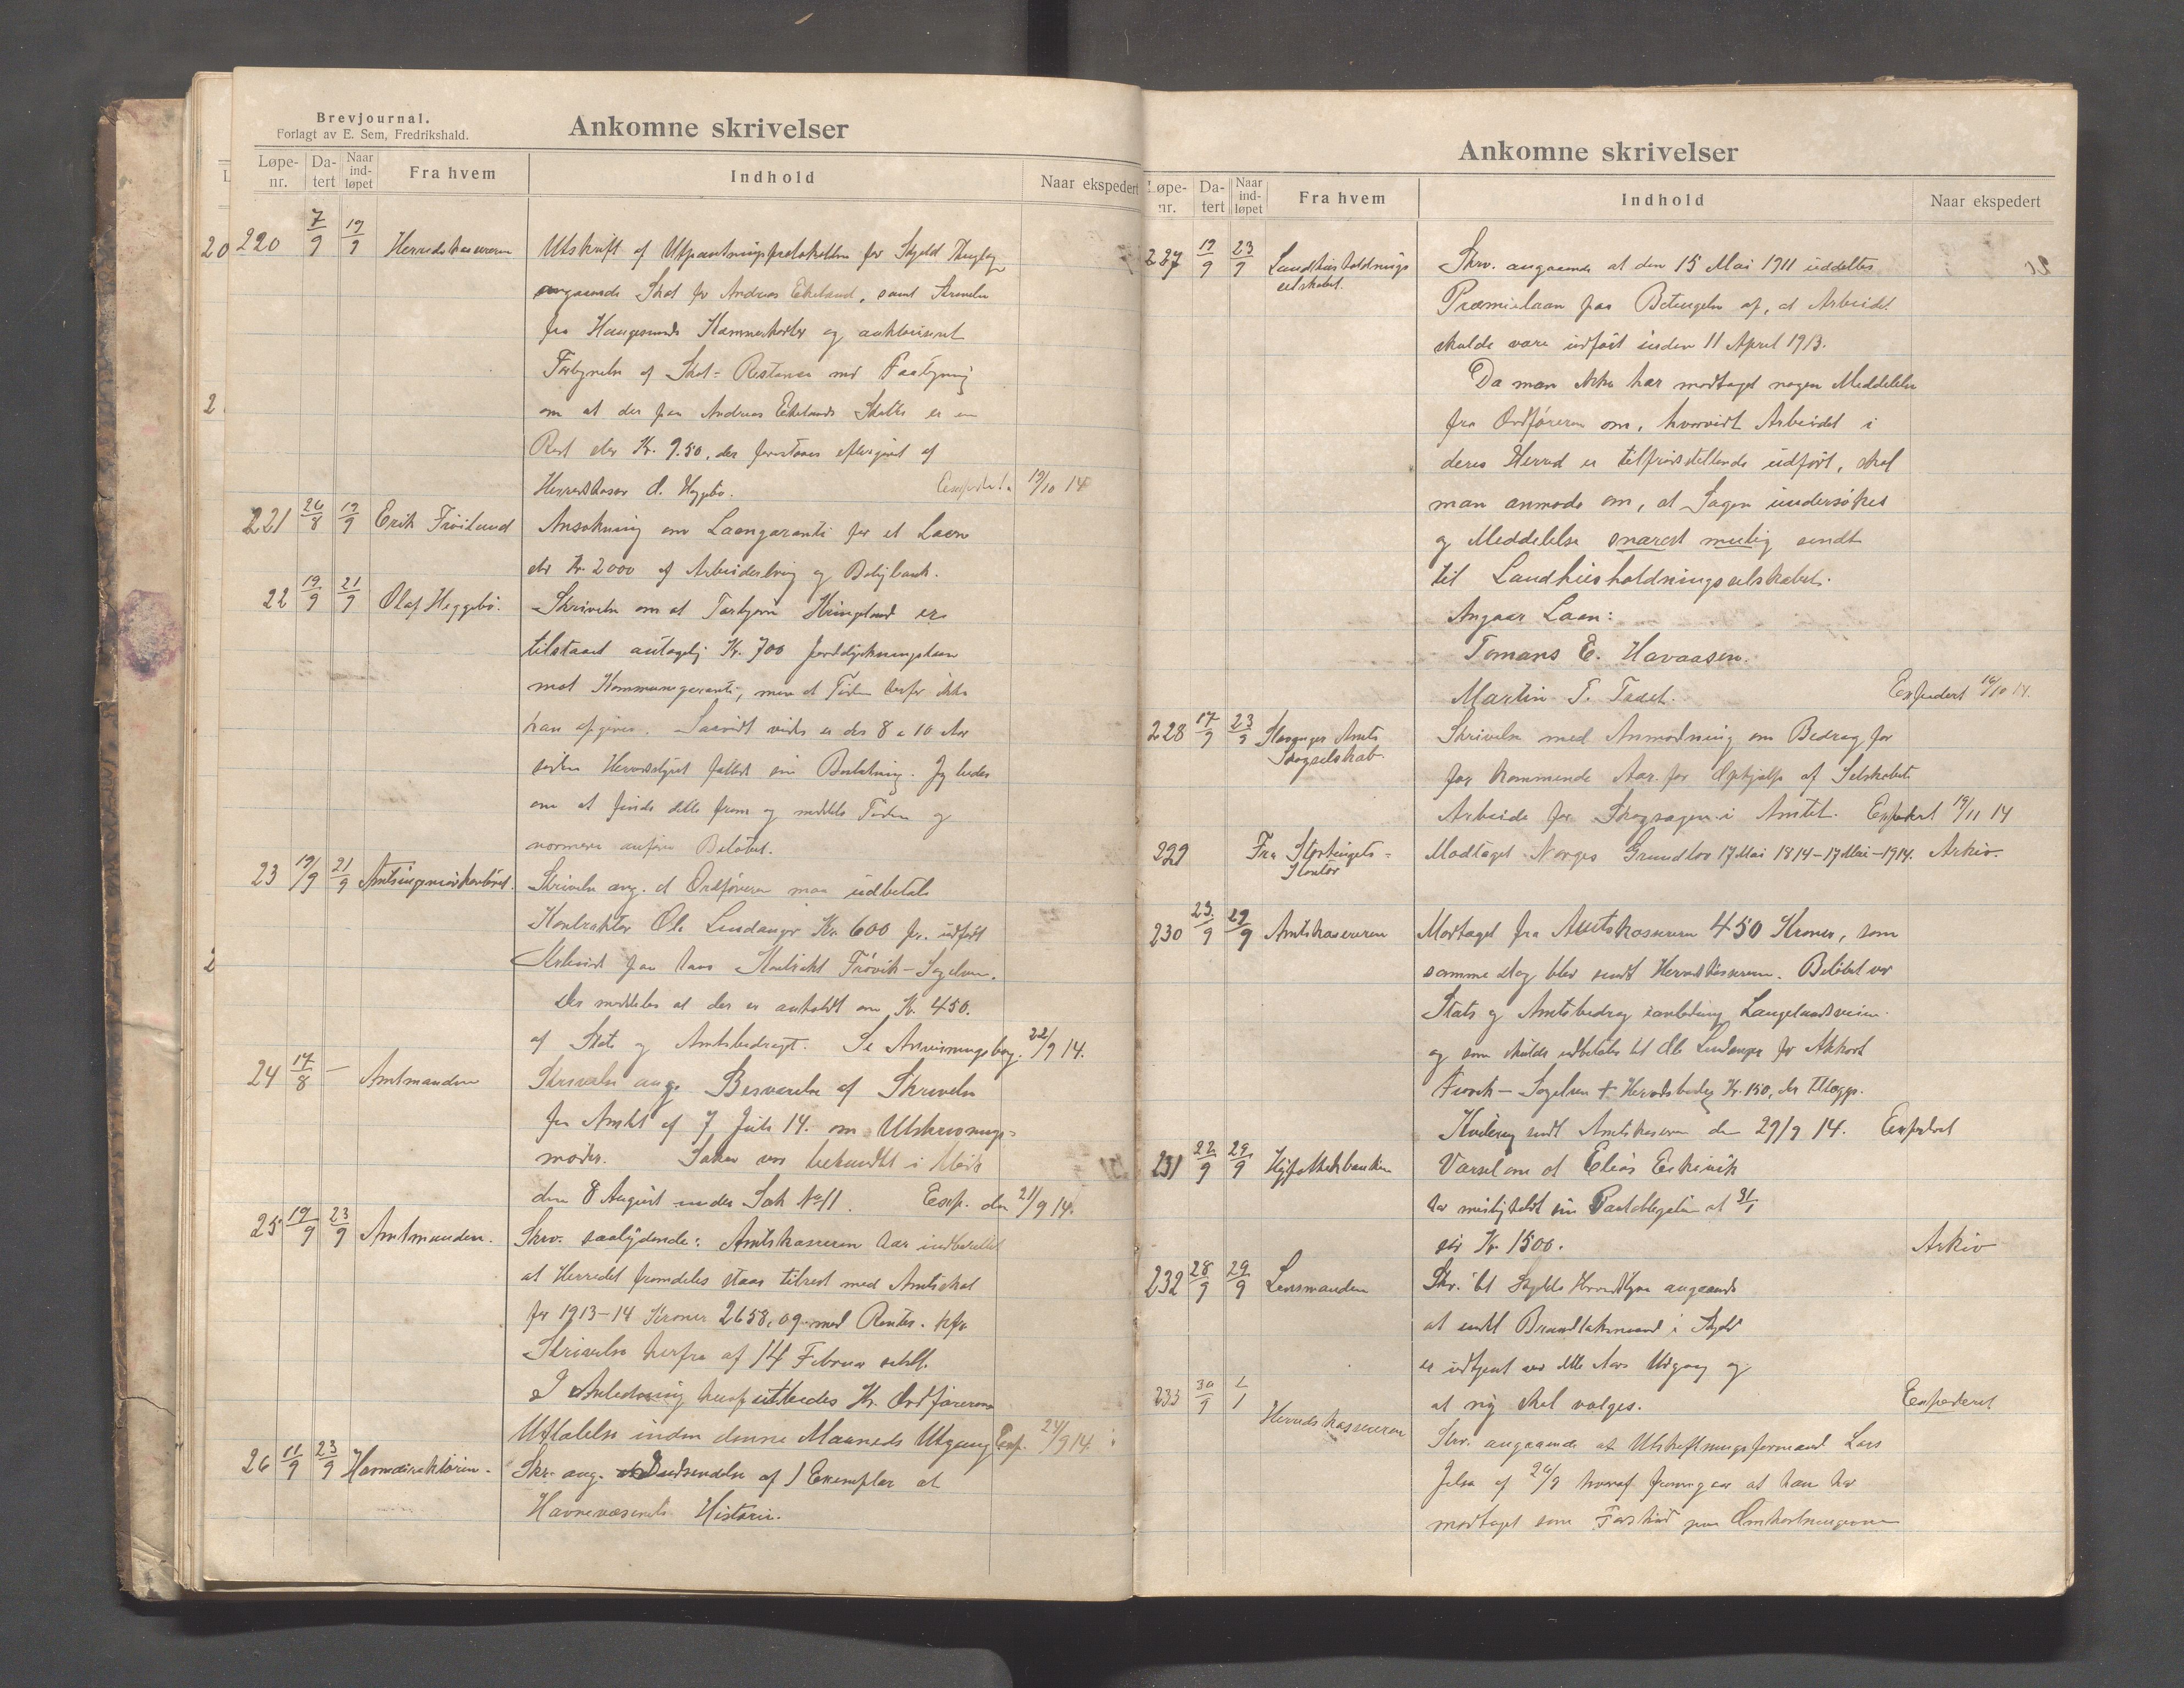 Brevjournal.
Forlagt av E. Sem, Fredrikshald.
Ankomne skrivelser
Løpe-nr. Da-tert Naar ind-løpet Fra hvem Indhold Naar ekspedert
220 7/9 19/9 Herredskasseren Utskrift af Utpantningsprotokollen for Skjold Thinglag
angaaende Skat for Andreas Ekeland, samt Skrivelse
fra Haugesunds Kæmnerkontor og
af Skat-Restanse med Paategning
om at der paa Andreas Ekelands Skatte er en
Rest stor Kr. 9.50, der eftergivet af
Herredskasser O. Heggebø. Expedert 19/10 14
221 26/8 19/9 Erik Frøiland Ansøkning om Laangaranti for et Laan
stor Kr. 2000 af Arbeiderbrug og Boligbank.
22 19/9 21/9 Olaf Heggebö. Skrivelse om at Torbjørn er
tilstaaet antagelig Kr. 700
mot Kommunegaranti, men at Tiden herfor ikke
kan opgives. Saavidt vides er det 8 a 10 Aar
siden Herredstyret fattet sin Beslutning. Jeg bedes
om at finde dette frem og meddele Tiden og
nærmere anføre Beløbet.
23 19/9 21/9 Amtsingeniørkontoret. Skrivelse ang. at Ordføreren maa udbetale
Kontraktør Ole Lindanger Kr. 600 for udført
Arbeide paa hans Kontrakt Frövik-Sogelven.
Der meddeles at der er anholdt om Kr. 450.
af Stats og Amtsbidraget. Se Anvisningsbog. 22/9 14.
24 17/8 — Amtmanden Skrivelse ang. Besvarelse af Skrivelse
fra Amtet af 7 Juli 14. om Utskrivnings-
møder. Saken var behandlet i Møde
den 8 August under Sak No 11. Exp. den 21/9 14.
25 19/9 23/9 Amtmanden. Skrv. saalydende: Amtskasseren har indberettet
at Herredet fremdeles staar tilrest med Amtsskat
for 1913-14 Kroner 2658,09 med Renter. kfr.
Skrivelse herfra af 14 Februar sidstl.
I Anledning heraf utbedes Hr. Ordførerens
Uttalelse inden denne Maaneds Utgang Exp. 24/9 14.
26 11/9 23/9 Havnedirektøren. Skr. ang. Indsendelse af 1 Exemplar at
Havnevæsenets Historie.
Ankomne skrivelser
Løpe-nr. Da-tert Naar ind-løpet Fra hvem Indhold Naar ekspedert
227 19/9 23/9 Landhusholdnings selskabet. Skrv. angaaende at den 15 Mai 1911 uddeltes
Præmielaan paa Betingelse af, at Arbeidet
skulde være udført inden 11 April 1913.
Da man ikke har modtaget nogen Meddelelse
fra Ordføreren om, hvorvidt Arbeidet i
deres Herred er tilfredsstillende udført, skal
man anmode om, at Sagen undersøkes
og Meddelelse snarest mulig sendt
til Landhusholdningsselskabet.
Angaar Laan:
Tomans E. Havaasen.
Martin T. Tveit. Expedert 16/10 14.
228 17/9 23/9 Stavanger Amts Skogselskab. Skrivelse med Anmodning om Bedrag for
for kommende Aar for Ophjælp af Selskabets
Arbeide for Skogsagen i Amtet. Expedert 19/11 14
229 Fra Stortingets-Kontor Modtaget Norges Grundlov 17 Mai 1814-17 Mai-1914. Arkiv.
230 23/9 29/9 Amtskasseren Mottaget fra Amtskasseren 450 Kroner, som
samme Dag blev sendt Herredskasseren. Beløbet var
Stats og Amtsbedrag i anledning Langelandsveien.
og som skulde udbetales til Ole Lindanger for Akkord
Frövik-Sogelven + Herredsbidrag Kr. 150,
Kvitering sendt Amtskasseren den 29/9 14. Expedert
231 22/9 29/9 Hypothekbanken Varsel om at Elias Eskivik
har misligholdt sin Panteobligation af 31/1
stor Kr. 1500. Arkiv
232 28/9 29/9 Lensmanden Skr. til Skjolds Herredstyre angaaende
at Brandtakstmand i Skjold
er udtjent ved dette Aars Udgang og
at ny skal vælges. Expederet
233 30/9 1/1 Herredskasseren Skr. angaaende at Utskiftningsformand Lars
Jelsa af 26/9 hvoraf fremgaar at han har
modtaget som Forskud paa Omkostningerne